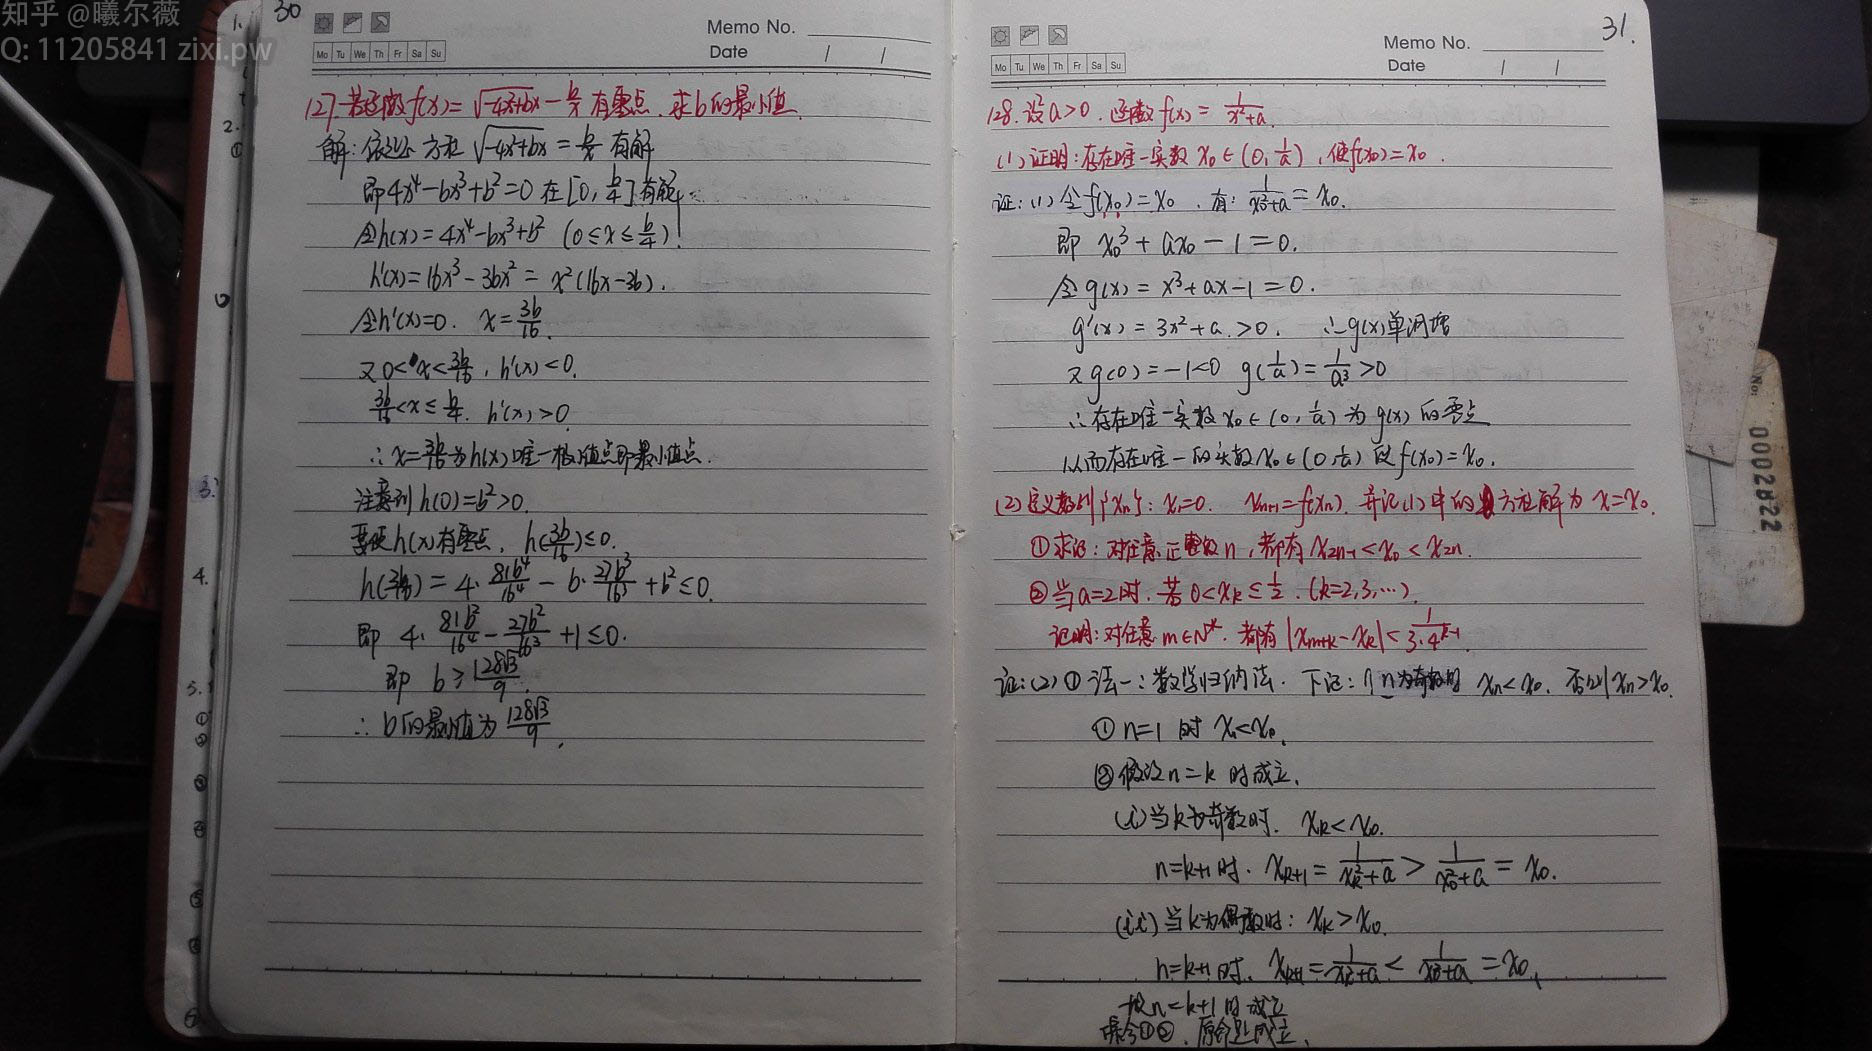 知乎 @曦尔薇
Q: 11205841 zixi.pw
30
Memo No.
Mo Tu We Th Fr Sa Su
Date / /
127. 若函数f(x)=√(-4x²+bx) - b/x 有零点, 求b的最小值.
解: 依题 方程 √(-4x²+bx) = b/x 有解
即 4x⁴-bx³+b²=0 在[0, b/4]有解
令h(x)=4x⁴-bx³+b² (0≤x≤b/4)
h'(x)=16x³-3bx²= x²(16x-3b).
令h'(x)=0. x=3b/16.
又0<x<3b/16, h'(x)<0.
3b/16<x≤b/4. h'(x)>0
∴x=3b/16为h(x)唯一极值点即最小值点.
注意到 h(0)=b²>0.
要使h(x)有零点, h(3b/16)≤0.
h(3b/16) = 4·81b⁴/16⁴ - b·27b³/16³ + b² ≤0.
即 4·81b²/16⁴ - 27b²/16³ +1≤0.
即 b≥128√3/9.
∴ b的最小值为 128√3/9.
31.
Memo No.
Mo Tu We Th Fr Sa Su
Date / /
128. 设a>0. 函数f(x)= 1/(x²+a).
(1) 证明: 存在唯一实数 x₀∈(0, 1/a), 使f(x₀)=x₀.
证: (1) 令f(x₀)=x₀, 有: 1/(x₀²+a) = x₀.
即 x₀³+ax₀-1=0.
令g(x)=x³+ax-1=0.
g'(x)=3x²+a>0. ∴g(x)单调增
又g(0)=-1<0 g(1/a)=1/a³>0
∴存在唯一实数x₀∈(0, 1/a) 为g(x)的零点
从而存在唯一的实数x₀∈(0, 1/a) 使f(x₀)=x₀.
(2) 定义数列{xn}: x₁=0. xn+1=f(xn). 并记(1)中的方程解为 x=x₀.
①求证: 对任意正整数n, 都有 x2n-1<x₀<x2n.
②当a=2时, 若 0<xk≤1/2. (k=2,3,…).
证明: 对任意m∈N*. 都有 |xm+k-xk|<1/(3·4^(k-1))
证: (2) ① 法一: 数学归纳法. 下证: n为奇数时 xn<x₀. 否则xn>x₀.
① n=1 时 x₁<x₀.
②假设n=k 时成立.
(i)当k为奇数时. xk<x₀.
n=k+1时. xk+1=1/(xk²+a)>1/(x₀²+a)=x₀.
(ii)当k为偶数时: xk>x₀.
n=k+1时. xk+1=1/(xk²+a)<1/(x₀²+a)=x₀.
故n=k+1时成立
综合①②, 原命题成立.
No: 0002822